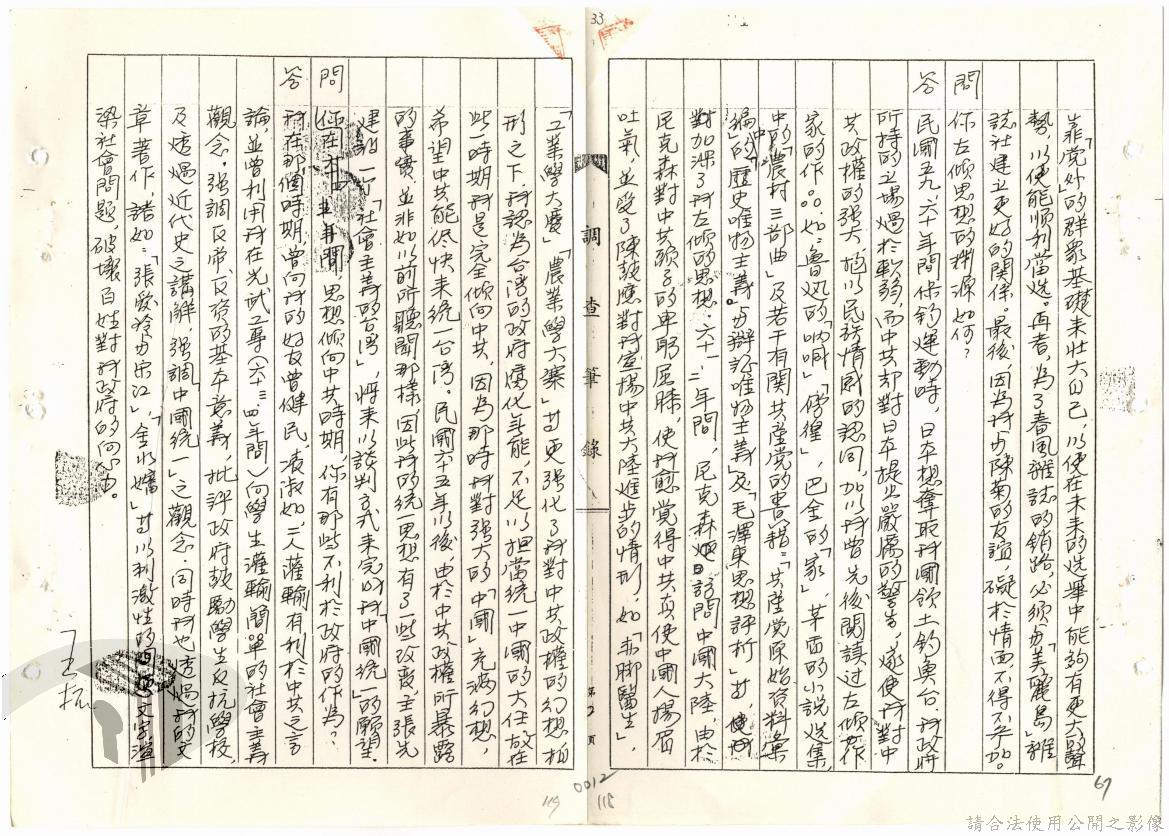 33
靠「党外」的群眾基礎來壯大自己,以便在未來的选舉中能夠有更大聲
勢,以便能順利當选。再者,為了春風雜誌的銷路,必須与「美麗島」雜
誌社建立更好的関係。最後,因為我与陳菊的友誼,礙於情面不得不参加。
問 你左傾思想的淵源如何?
答 民國五九、六十年間保釣運動時,日本想奪取我國領土釣魚台,我政府
所持的立場過於軟弱,而中共却對日本提出嚴厲的警告,遂使我對中
共政權的强大抱以民族情感的認同,加以我曾先後閱讀过左傾作
家的作品如:魯迅的「吶喊」「徬徨」,巴金的「家」,茅盾的小說选集,
中的「農村三部曲」及若干有関共產党的書籍:「共產党原始資料彙
編」的「歷史唯物主義」与「辯証唯物主義」及「毛澤東思想評析」等,
對加深了我左傾的思想。六十一、二年間,尼克森訪問中國大陸,由於
尼克森對中共頭子的卑躬屈膝,使我愈覺得中共真使中國人揚眉
吐氣,並受了陳鼓應對我宣揚中共大陸進步的情形,如「赤脚醫生」,
調查筆錄
第2頁
「工業學大慶」「農業學大寨」等更强化了我對中共政權的幻想,相
形之下,我認為台湾的政府腐化無能,不足以担當統一中國的大任,故在
此一時期我是完全傾向中共,因為那時我對强大的「中國」充滿幻想,
希望中共能侭快來統一台湾。民國六十五年以後,由於中共政權所暴露
的事實,並非如以前所聽聞那樣,因此我的統一思想有了一些改变,主張先
建設一个「社會主義的台湾」,將來以談判方式來完成我「中國統一」的願望。
問 你在 年間,思想傾向中共時期,你有那些不利於政府的作為?
答 我在那個時期,曾向我的好友曾健民、凌淑如二人灌輸有利於中共之言
論,並曾利用我在光武工專(六十三、四年間)向學生灌輸簡單的社會主義
觀念,强調反帝、反資的基本意義,批評政府,鼓勵學生反抗學校,
及透過近代史之講解,强調「中國統一」之觀念,同時我也透過我的文
章著作,諸如:「張愛玲与宋江」,「金水嬸」等以刺激性的 文字渲
染社會問題,破壞百姓對我政府的向心力。
王拓
0012
119
118
67
請合法使用公開之影像